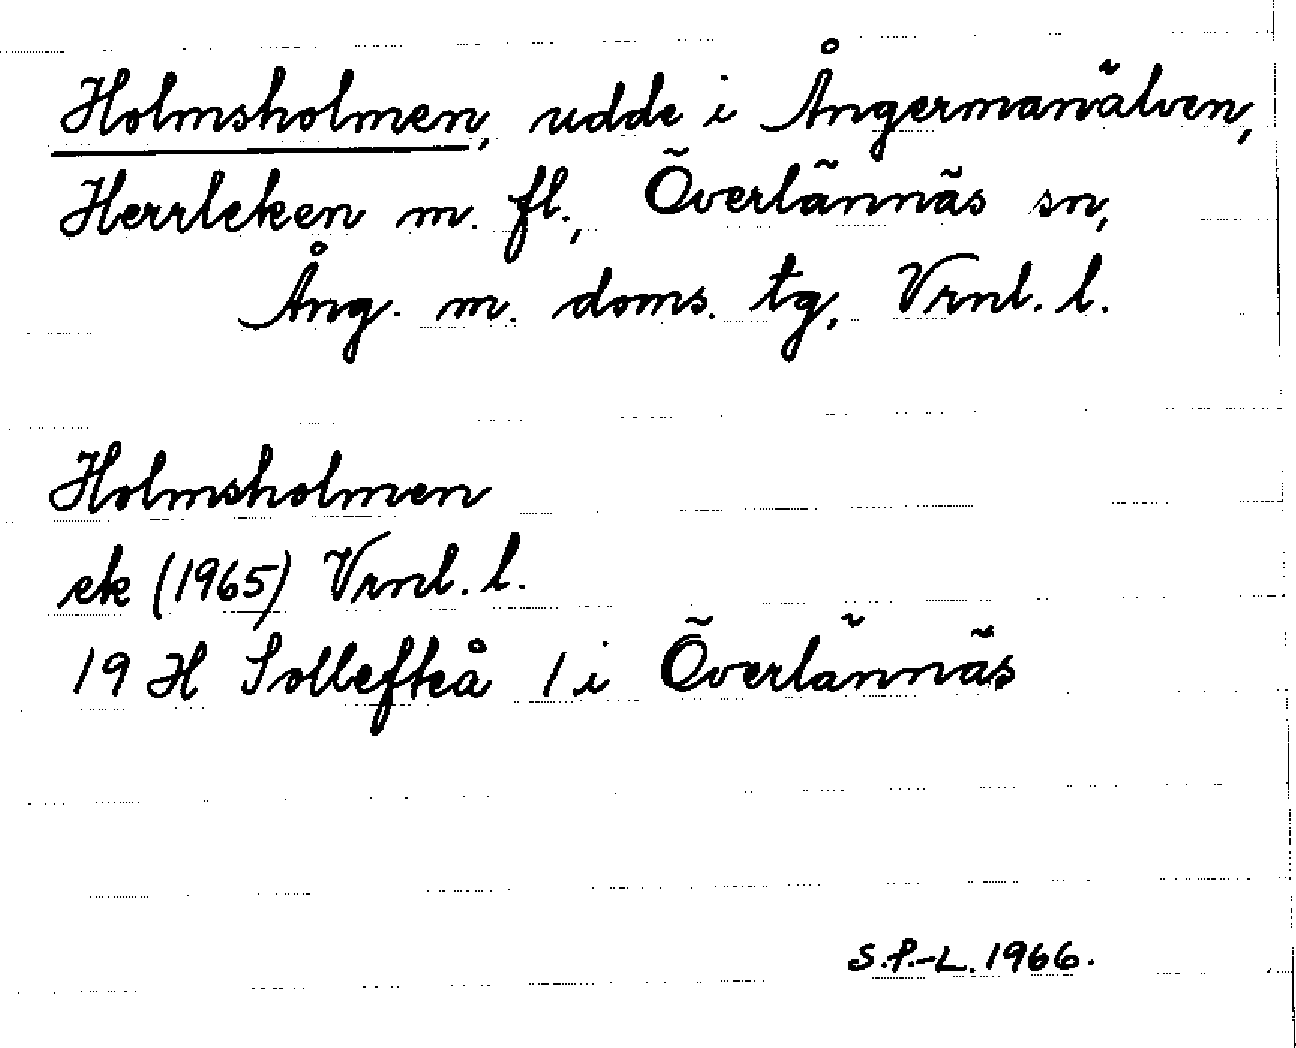 Holmsholmen, udde i Ångermanälven,
Herrleken m. fl., Överlännäs sn,
Ång. m. doms. tg, Vrnl. l.
Holmsholmen
ek (1965) Vrnl. l.
19 H Sollefteå 1 i Överlännäs
S.P.-L. 1966.